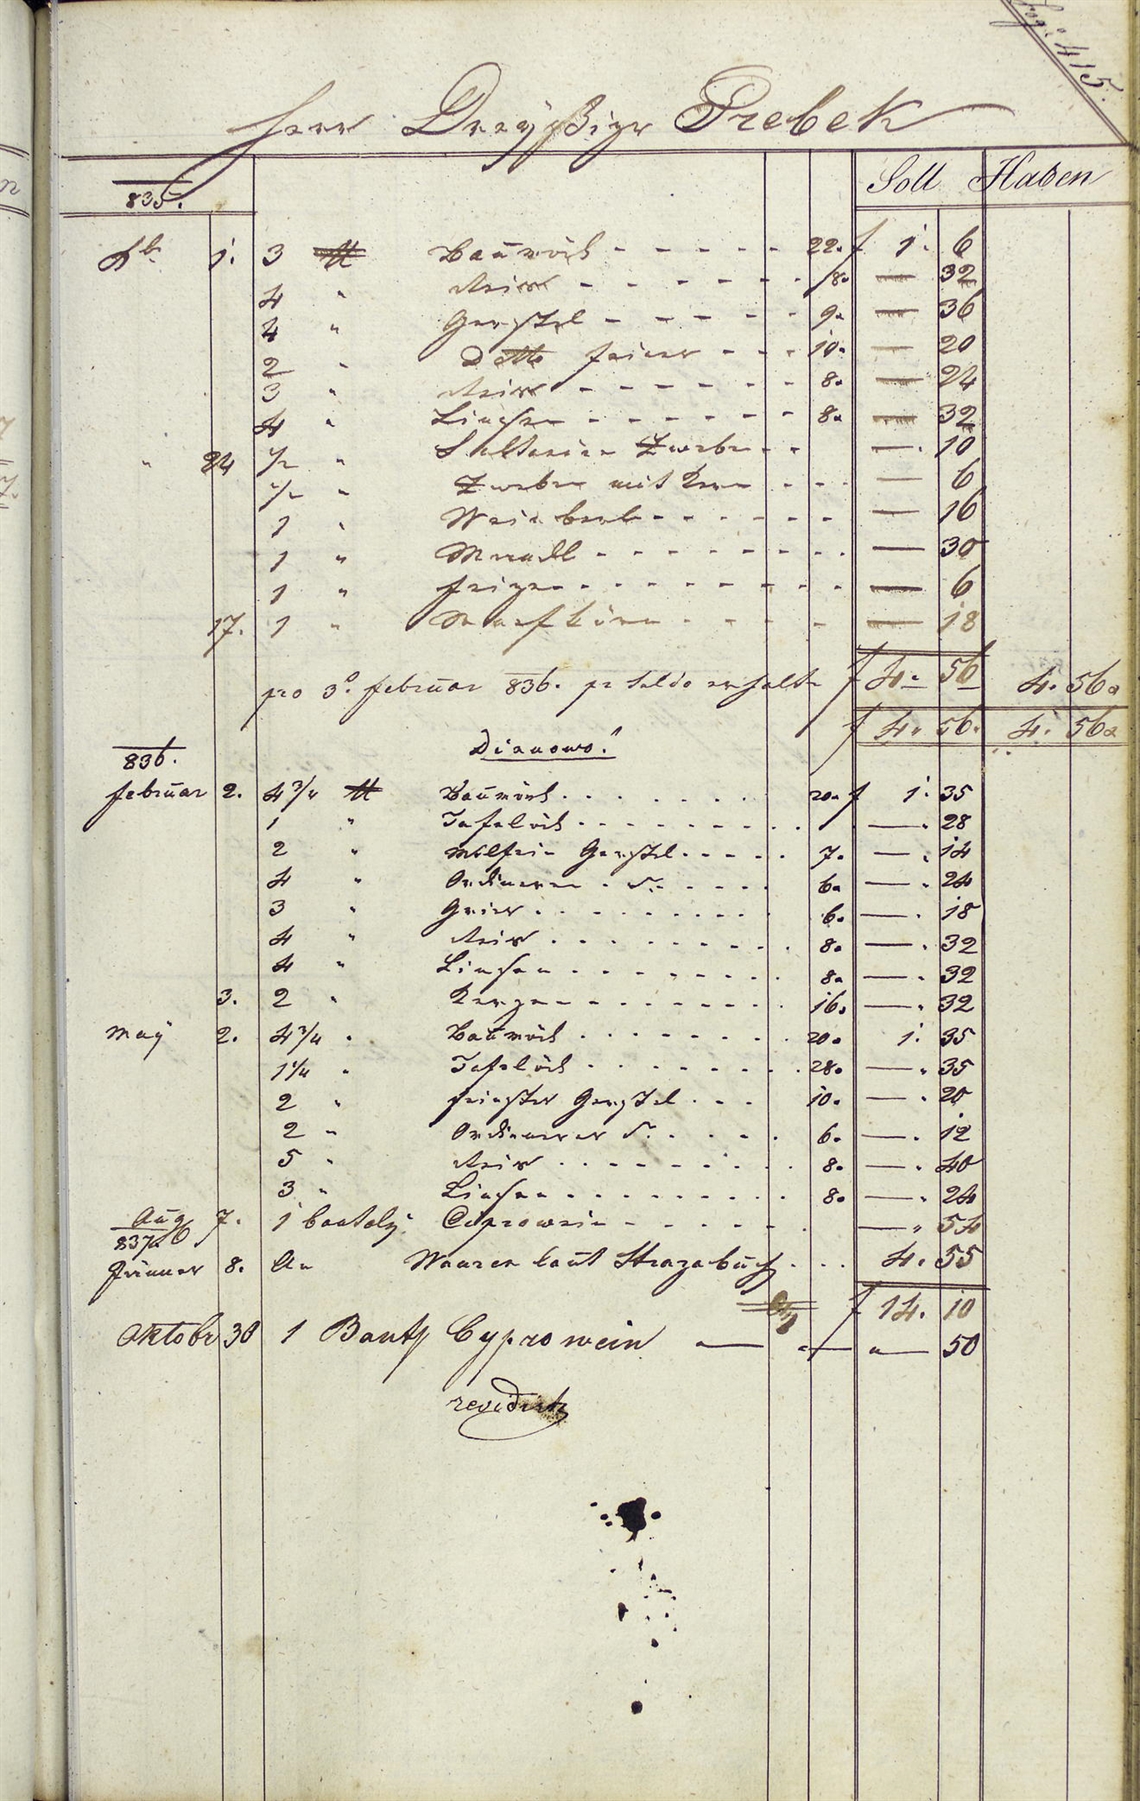 fog: 415.
Herr Dreyßiger Prebek
Soll Haben
835.
Xb. 1. 3 ℔ Baumöhl - - - - - 22. f 1. 6
4 " Reis - - - - - - 8. — 32
4 " Gerstel - - - - - 9. — 36
2 " Ditto feiner - - - 10. — 20
3 " Reis - - - - - - 8. — 24
4 " Linsen - - - - - - 8. — 32
" 24 1/2 " Zweben - - — 10
1/2 " Zweben mit Kern - - - — 6
1 " Weinberl - - - - - - — 16
1 " Mandl - - - - - - - — 30
1 " Feigen - - - - - - - — 6
17. 1 " - - - - — 18
pro 3º februar 836. pr Saldo erhalten f 4. 56 4. 56
f 4. 56. 4. 56
836. Dienovo!
februar 2. 4 3/4 ℔ Baumöhl . . . . . . 20. f 1. 35
1 " Tafelöhl . . . . . . . — . 28
2 " Gerstel . . . . . 7. — . 14
4 " Ordinaren . d. . . . . . 6. — . 24
3 " Gries . . . . . . . . . 6. — . 18
4 " Reis . . . . . . . . . 8. — . 32
4 " Linsen . . . . . . . . 8. — . 32
3. 2 " Kerzen . . . . . . . . 16. — . 32
May 2. 4 3/4 " Baumöhl . . . . . . . 20. 1. 35
1 1/4 " Tafelöhl . . . . . . . 28. — . 35
2 " feinster Gerstel . . . 10. — . 20
2 " Ordinarer d. . . . . . 6. — . 12
5 " Reis . . . . . . . . . 8. — . 40
3 " Linsen . . . . . . . . 8. — . 24
Aug 7. 1 Ciprowein - - - - - - — " 54
837
Jänner 8. An Waaren laut Strazabuch . . . 4. 55
f 14. 10
Oktobr 30 1 Cyprowein — — " — 50
revidirt